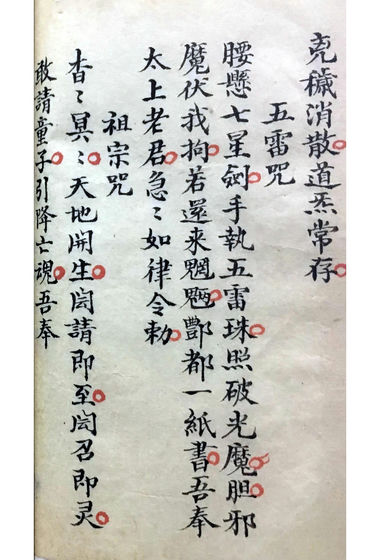 克穢消散道炁常存
五雷咒
腰懸七星劍手執五雷珠照破光魔胆邪
魔伏我拘若還来魍魎酆都一紙書吾奉
太上老君急〻如律令勅
祖宗咒
杳〻冥〻天地開生闾請即至闾召即灵
敢請童子引降亡魂吾奉